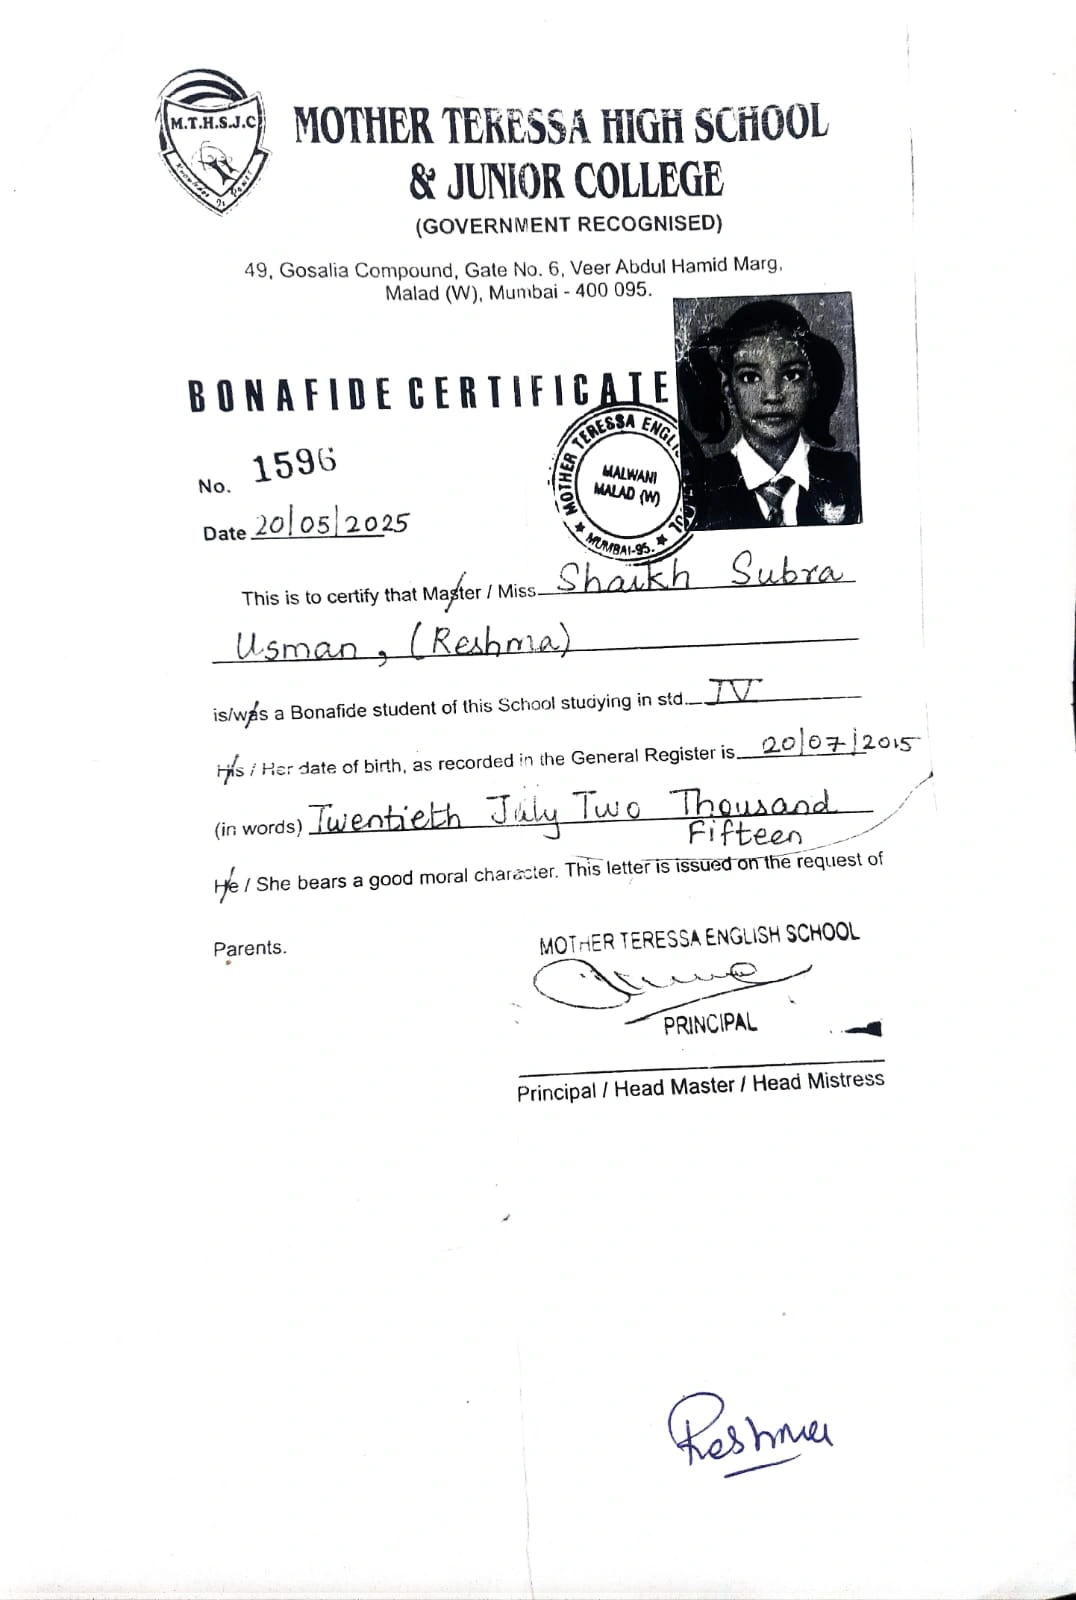 M.T.H.S.J.C
MOTHER TERESSA HIGH SCHOOL
& JUNIOR COLLEGE
(GOVERNMENT RECOGNISED)
49, Gosalia Compound, Gate No. 6, Veer Abdul Hamid Marg,
Malad (W), Mumbai - 400 095.
BONAFIDE CERTIFICATE
MOTHER TERESSA ENGLI
MALWANI
MALAD (W)
MUMBAI-95.
No. 1596
Date 20/05/2025
This is to certify that Master / Miss Shaikh Subra
Usman, (Reshma)
is/was a Bonafide student of this School studying in std. IV
His / Her date of birth, as recorded in the General Register is 20/07/2015
(in words) Twentieth July Two Thousand
Fifteen
He / She bears a good moral character. This letter is issued on the request of
Parents.
MOTHER TERESSA ENGLISH SCHOOL
PRINCIPAL
Principal / Head Master / Head Mistress
Reshma